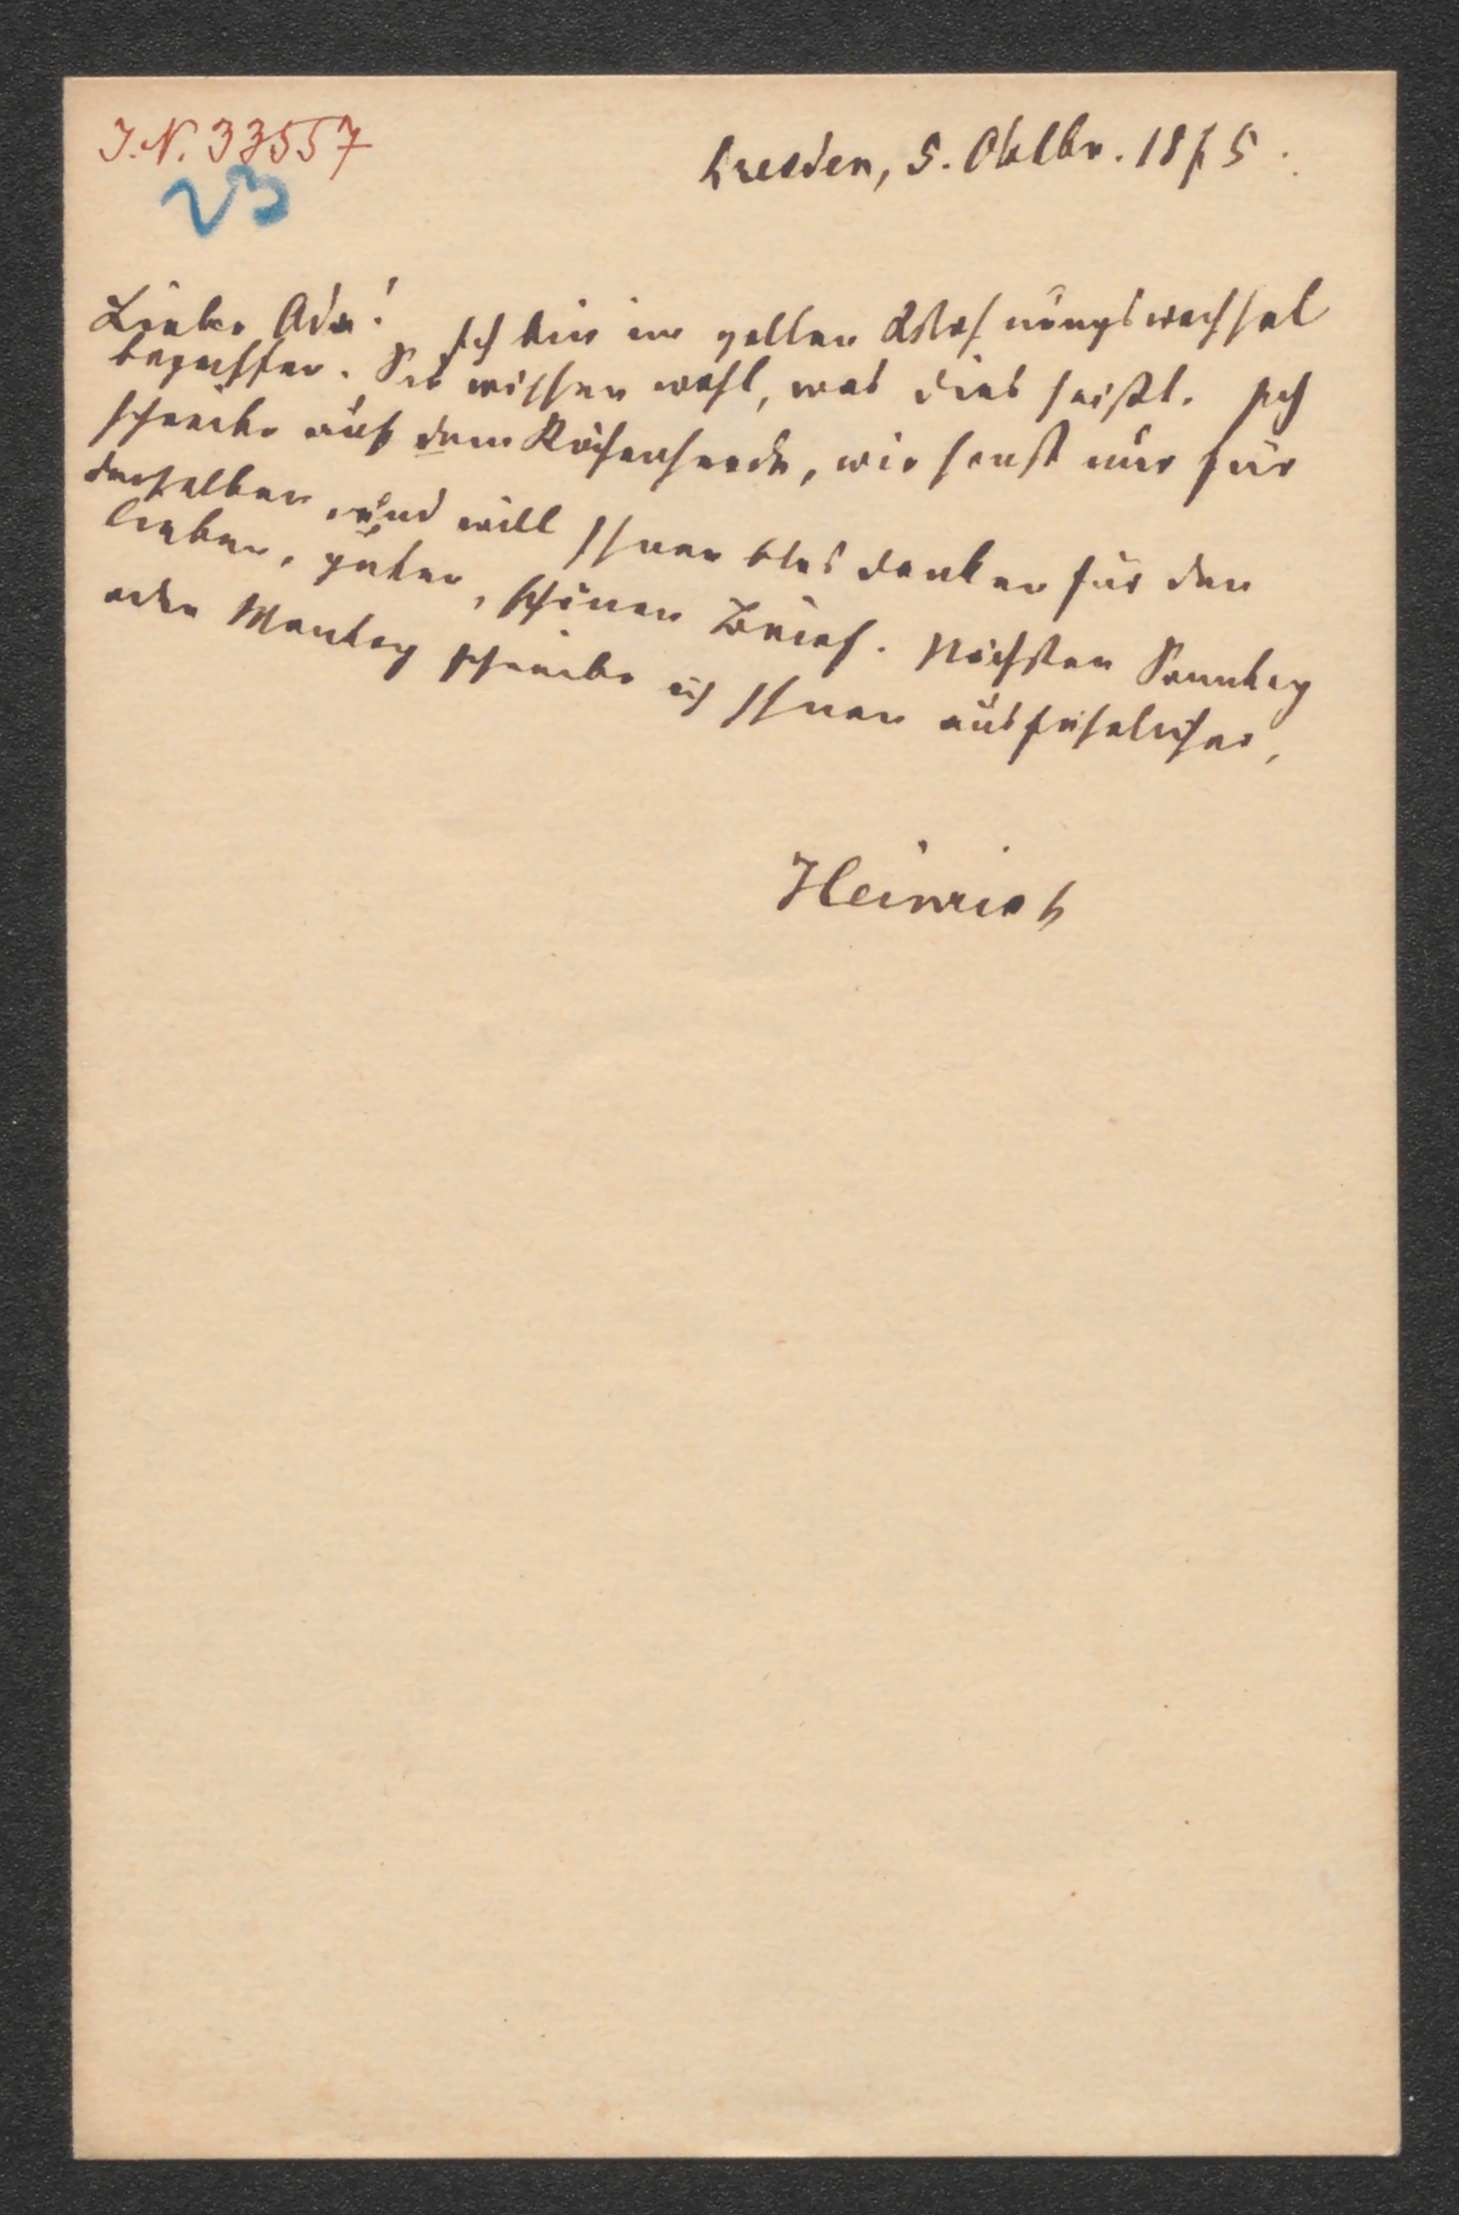 J.N. 33557
23
Dresden, 5. Oktbr. 1875.
Liebe Ada! Ich bin im vollen Wohnungswechsel
begriffen. Sie wissen wohl, was dies heißt. Ich
schreibe auf dem Küchenherde, wie sonst nur für
denselben und will Ihnen blos danken für den
lieben, guten, schönen Brief. Nächsten Sonntag
oder Montag schreibe ich Ihnen ausführlicher,
Heinrich